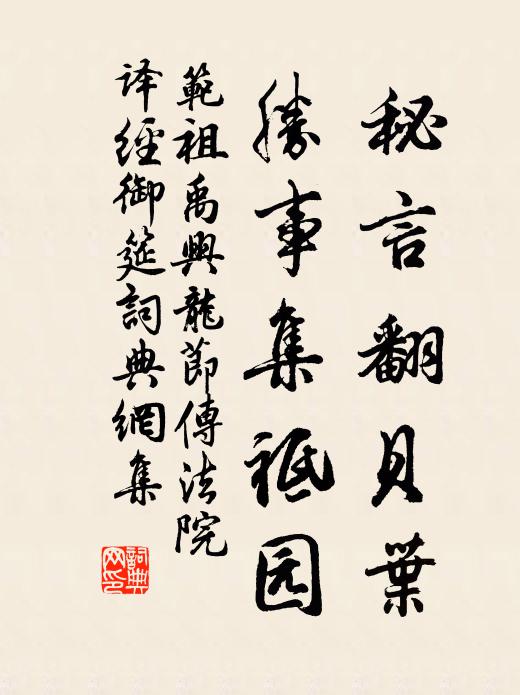 秘言翻贝葉
勝事集祗园
範祖禹興龍節傳法院
译經御筵詞典網集
詞典网印